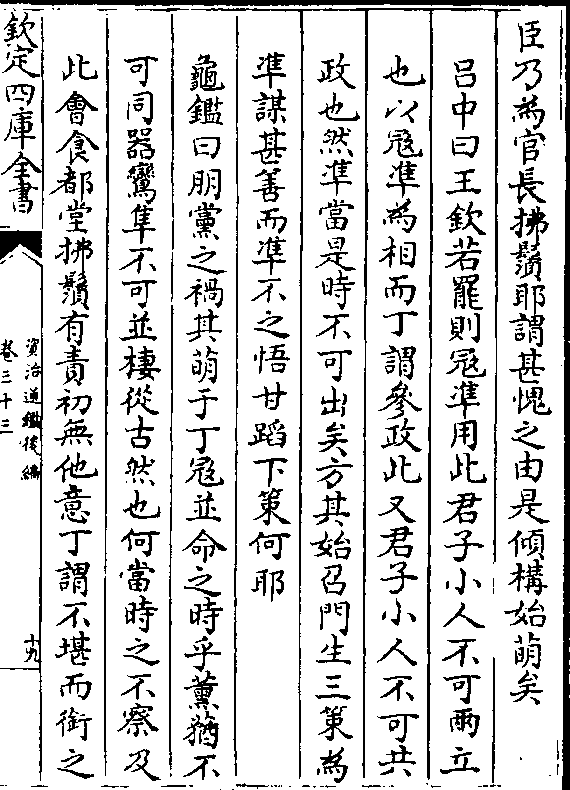 臣乃為官長拂鬚耶謂甚愧之由是傾構始萌矣
吕中曰王欽若罷則冦準用此君子小人不可兩立
也以冦準為相而丁謂參政此又君子小人不可共
政也然準當是時不可出矣方其始召門生三策為
準謀甚善而準不之悟甘蹈下策何耶
龜鑑曰朋黨之禍其萌于丁冦並命之時乎薰蕕不
可同器鸞隼不可並棲從古然也何當時之不察及
此會食都堂拂鬚有責初無他意丁謂不堪而銜之
欽定四庫全書
資治通鑑後編
卷三十三
十九